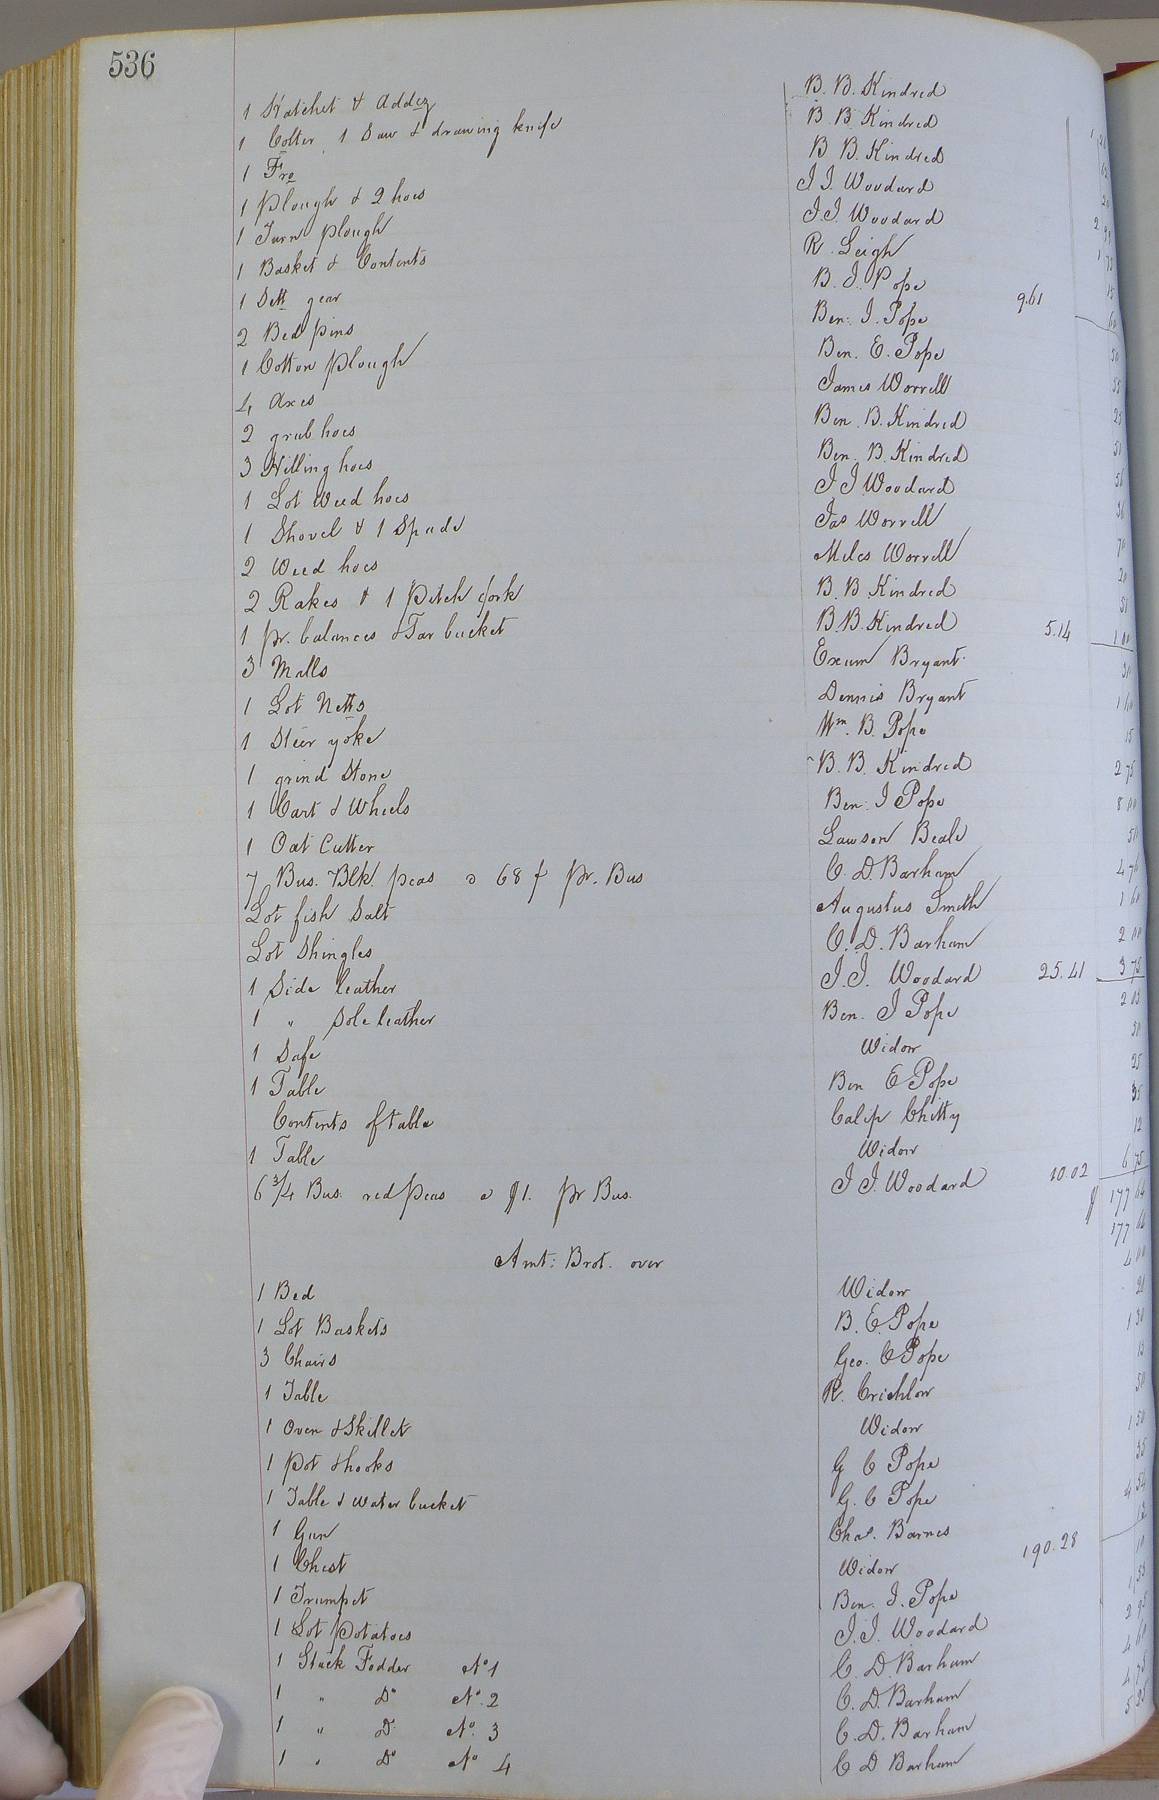 536
1 Hatchet & Addez B. B. Kindred
1 Colter, 1 Saw & drawing knife B. B. Kindred
1 Fro B. B. Kindred
1 Plough & 2 hoes J. J. Woodard
1 Turn plough J. J. Woodard
1 Basket & Contents R. Leigh
1 Sett gear B. J. Pope 9.61
2 Bed pins Ben. J. Pope 50
1 Cotton Plough Ben. E. Pope 55
4 Axes James Worrell 25
2 grub hoes Ben. B. Kindred
3 Hilling hoes Ben. B. Kindred
1 Lot Weed hoes J J Woodard
1 Shovel & 1 Spade Jas Worrell
2 Weed hoes Miles Worrell
2 Rakes & 1 Pitch fork B. B Kindred
1 pr. balances & Tar bucket B. B. Kindred 5.14 1 00
3 Malls Exum Bryant
1 Lot Netts Dennis Bryant
1 Steer yoke Wm. B. Pope 15
1 grind Stone B. B. Kindred 2 75
1 Cart & Wheels Ben. J Pope 8 00
1 Oat Cutter Lawson Beale 50
7 Bus. Blk. peas @ 68 ¢ pr. Bus C. D. Barham 4 76
Lot fish Salt Augustus Smith 1 60
Lot Shingles C. D. Barham 2 00
1 Side leather J. J. Woodard 25.41 3 75
1 " Sole leather Ben. J Pope 2 05
1 Safe Widow 50
1 Table Ben E Pope 25
Contents of table Calip Chitty 35
1 Table Widow 12
6 3/4 Bus. red peas @ $1. pr Bus. J J. Woodard 10.02 6 75
$ 177 64
Amt: Brot. over 177 64
1 Bed Widow 4 00
1 Lot Baskets B. E. Pope 20
3 Chairs Geo. C Pope 1 30
1 Table R. Crichlow 15
1 Oven & Skillet Widow 50
1 Pot & hooks G C Pope 1 50
1 Table & water bucket G. C Pope 35
1 Gun Chas. Barnes 4 54
1 Chest Widow 190.28 12
1 Trumpet Ben. J. Pope 10
1 Lot Potatoes J. J. Woodard 1 55
1 Stack Fodder No 1 C. D. Barham 2 95
1 " Do No. 2 C. D. Barham 4 60
1 " D. No. 3 C. D. Barham 4 75
1 " Do No 4 C D Barham 5 25